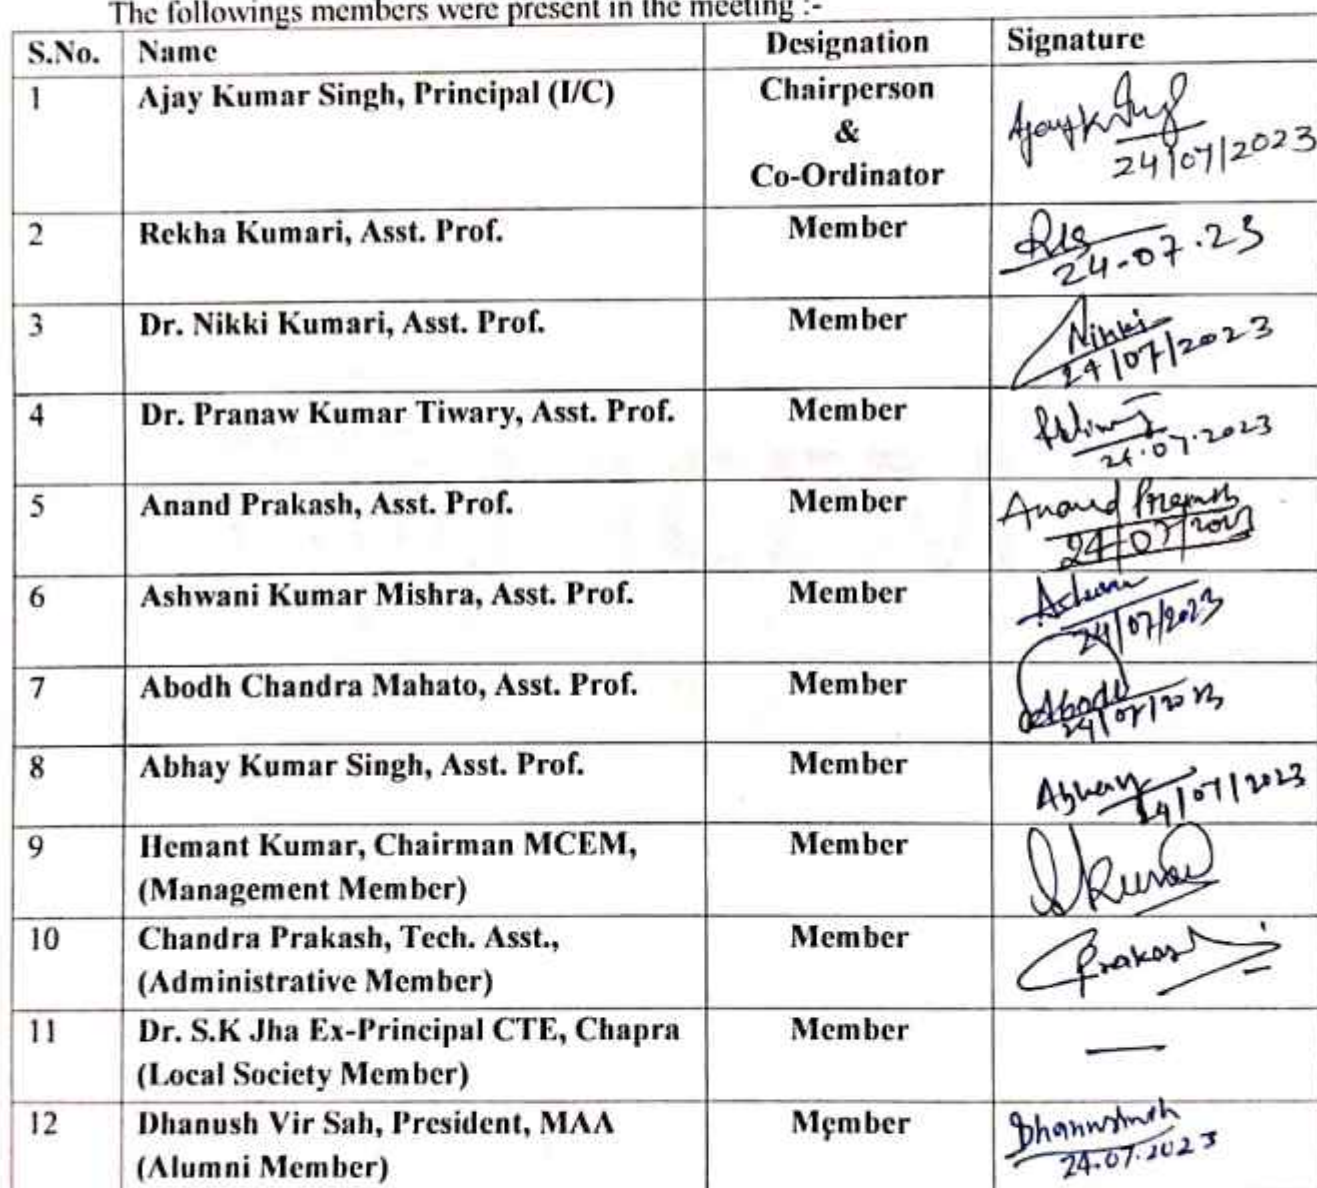 The followings members were present in the meeting :-
S.No. Name Designation Signature
1 Ajay Kumar Singh, Principal (I/C) Chairperson
&
Co-Ordinator
24/07/2023
2 Rekha Kumari, Asst. Prof. Member
24-07.23
3 Dr. Nikki Kumari, Asst. Prof. Member Nikki
24/07/2023
4 Dr. Pranaw Kumar Tiwary, Asst. Prof. Member
24.07.2023
5 Anand Prakash, Asst. Prof. Member Anand
24/07/2023
6 Ashwani Kumar Mishra, Asst. Prof. Member
24/07/2023
7 Abodh Chandra Mahato, Asst. Prof. Member Abodh
24/07/2023
8 Abhay Kumar Singh, Asst. Prof. Member Abhay
24/07/2023
9 Hemant Kumar, Chairman MCEM, Member
(Management Member)
10 Chandra Prakash, Tech. Asst., Member Prakash
(Administrative Member)
11 Dr. S.K Jha Ex-Principal CTE, Chapra Member —
(Local Society Member)
12 Dhanush Vir Sah, President, MAA Member
(Alumni Member) 24.07.2023